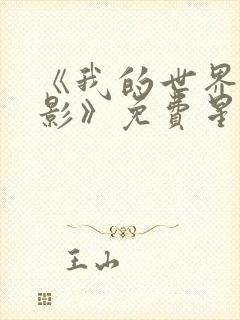 《我的世界
影》免費星
王山